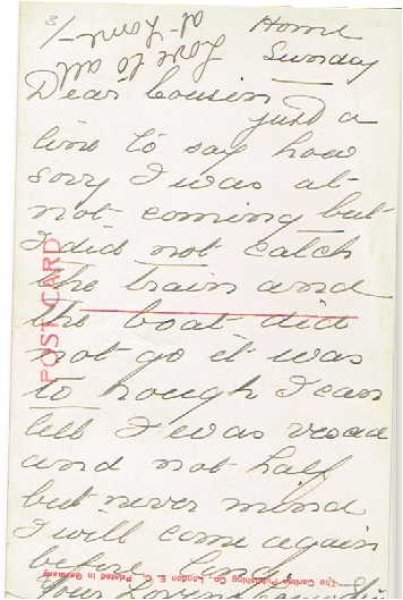 3/-
Home
Sunday
love to all
at Home
Dear Cousin
just a
line to say how
sorry I was at
not coming but
I did not catch
the train and
the boat did
not go it was
to rough I can
tell I was vexed
and not half
but never mind
I will come again
before long
Your loving Cousin
POST CARD
The Carlton Publishing Co. London E. C. Printed in Germany